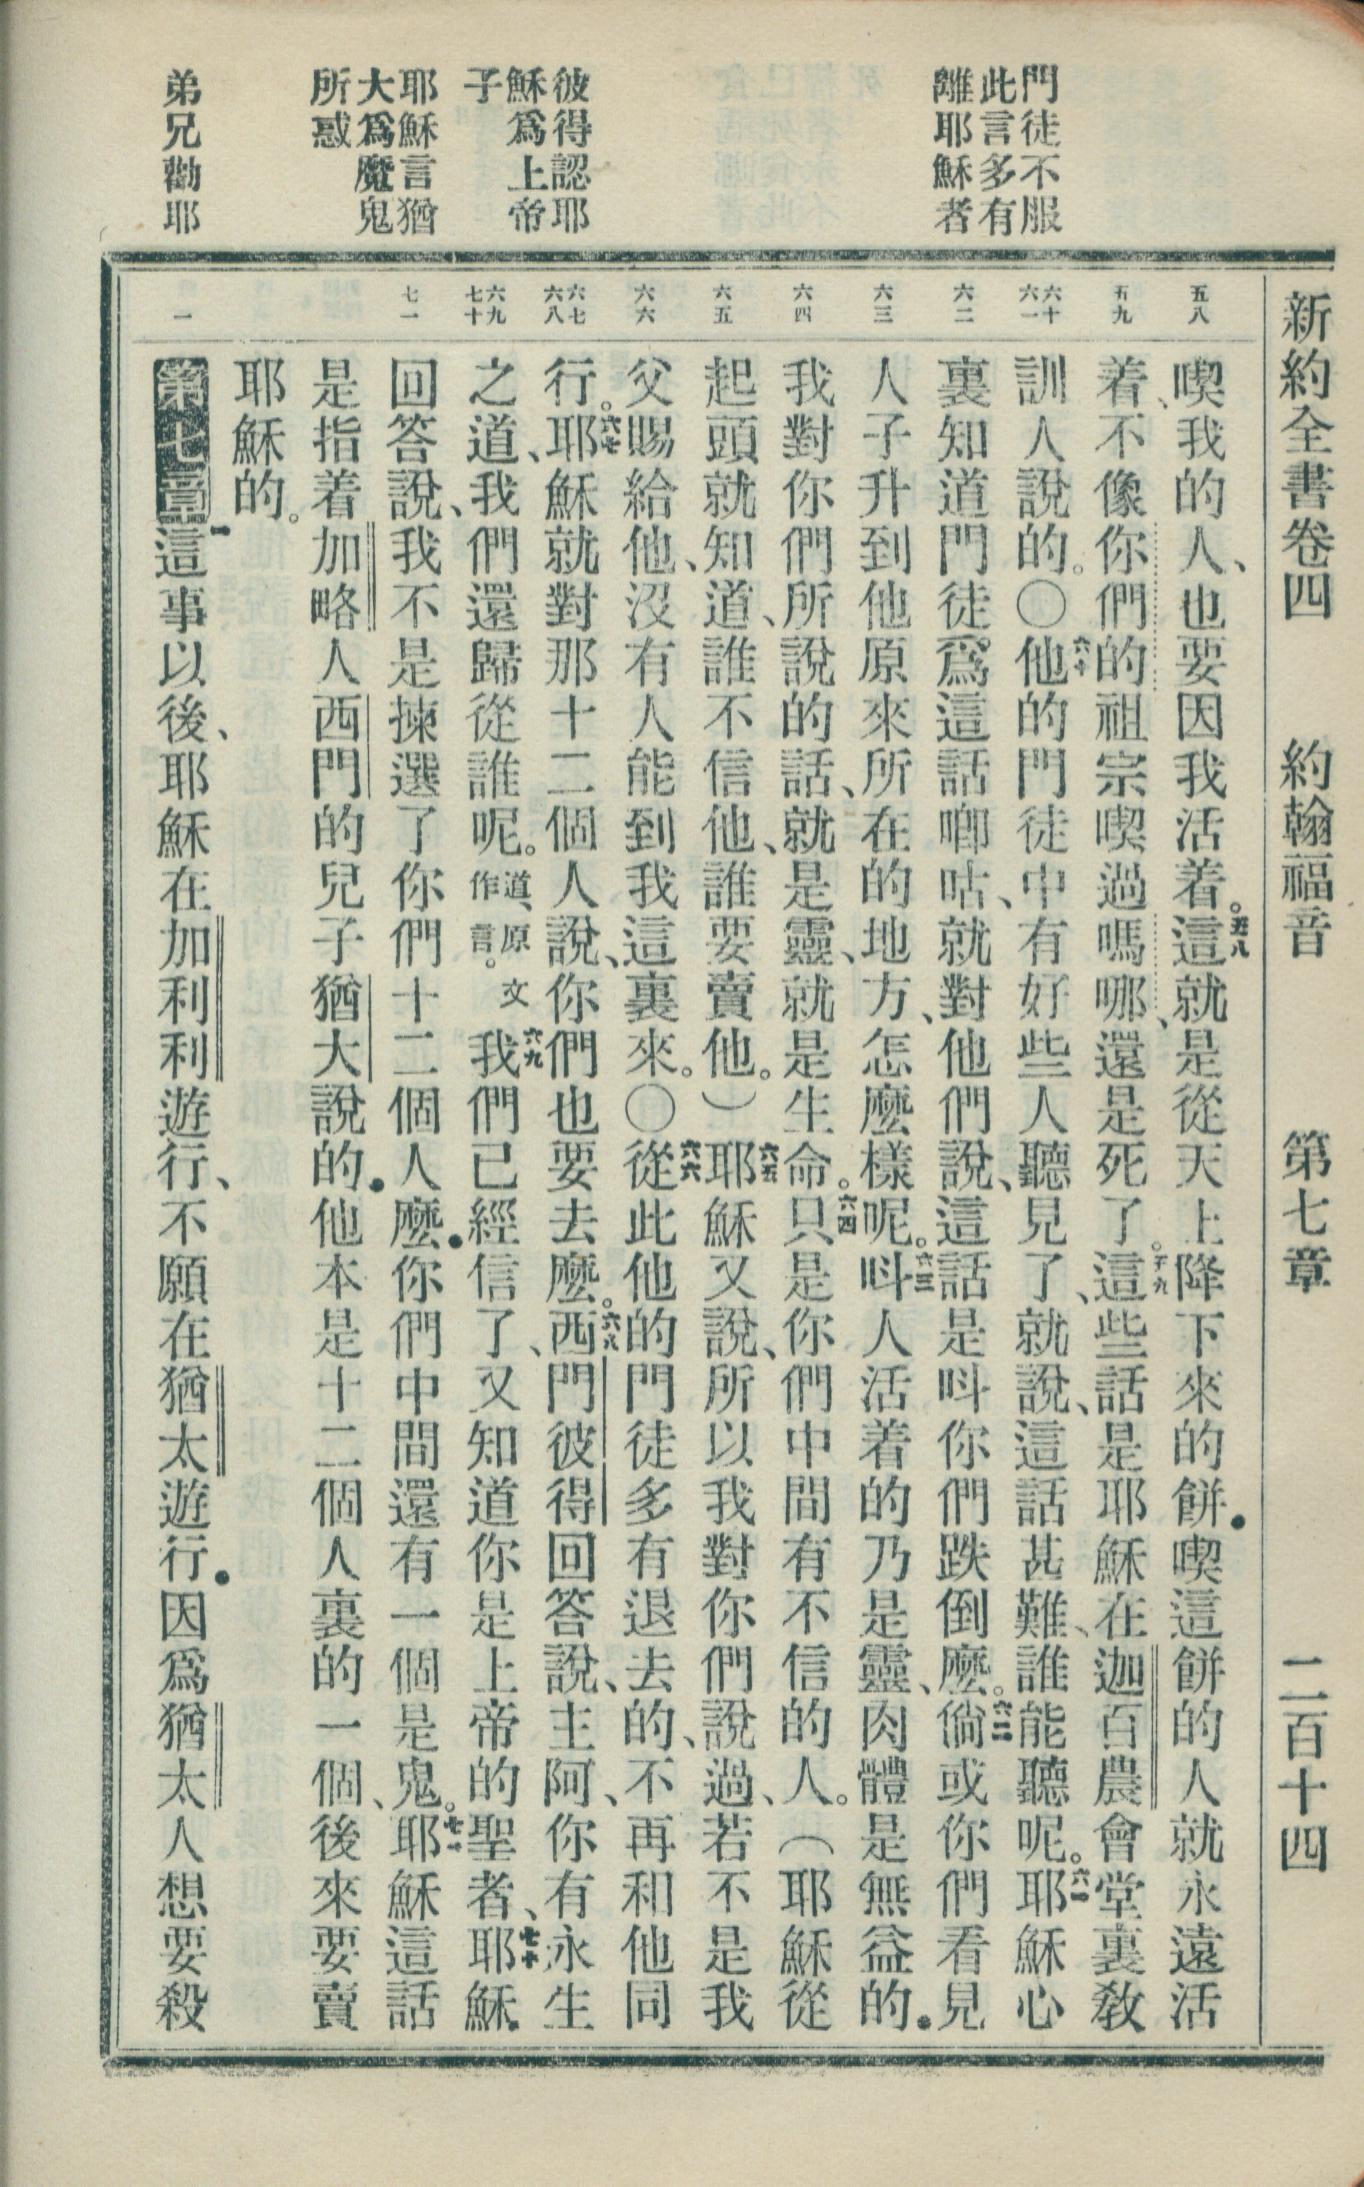 新約全書卷四　約翰福音　第七章　二百十四
門徒不服
此言多有
離耶穌者
彼得認耶
穌爲上帝
子
耶穌言猶
大爲魔鬼
所惑
弟兄勸耶
五八
五九
六十
六一
六二
六三
六四
六五
六六
六七
六八
六九
七十
七一
一
喫我的人、也要因我活着。五八這就是從天上降下來的餅．喫這餅的人就永遠活
着、不像你們的祖宗喫過嗎哪、還是死了。五九這些話是耶穌在迦百農會堂裏教
訓人說的。〇六十他的門徒中有好些人聽見了、就說、這話甚難、誰能聽呢。六一耶穌心
裏知道門徒爲這話唧咕、就對他們說、這話是呌你們跌倒麼。六二倘或你們看見
人子升到他原來所在的地方、怎麼樣呢。六三呌人活着的乃是靈、肉體是無益的．
我對你們所說的話、就是靈、就是生命。六四只是你們中間有不信的人。（耶穌從
起頭就知道、誰不信他、誰要賣他。）六五耶穌又說、所以我對你們說過、若不是我
父賜給他、沒有人能到我這裏來。〇六六從此他的門徒多有退去的、不再和他同
行。六七耶穌就對那十二個人說、你們也要去麼。六八西門彼得回答說、主阿、你有永生
之道、我們還歸從誰呢。道、原文作言。六九我們已經信了、又知道你是上帝的聖者、七十耶穌
回答說、我不是揀選了你們十二個人麼．你們中間還有一個是鬼。七一耶穌這話
是指着加略人西門的兒子猶大說的．他本是十二個人裏的一個、後來要賣
耶穌的。
第七章一這事以後、耶穌在加利利遊行、不願在猶太遊行．因爲猶太人想要殺